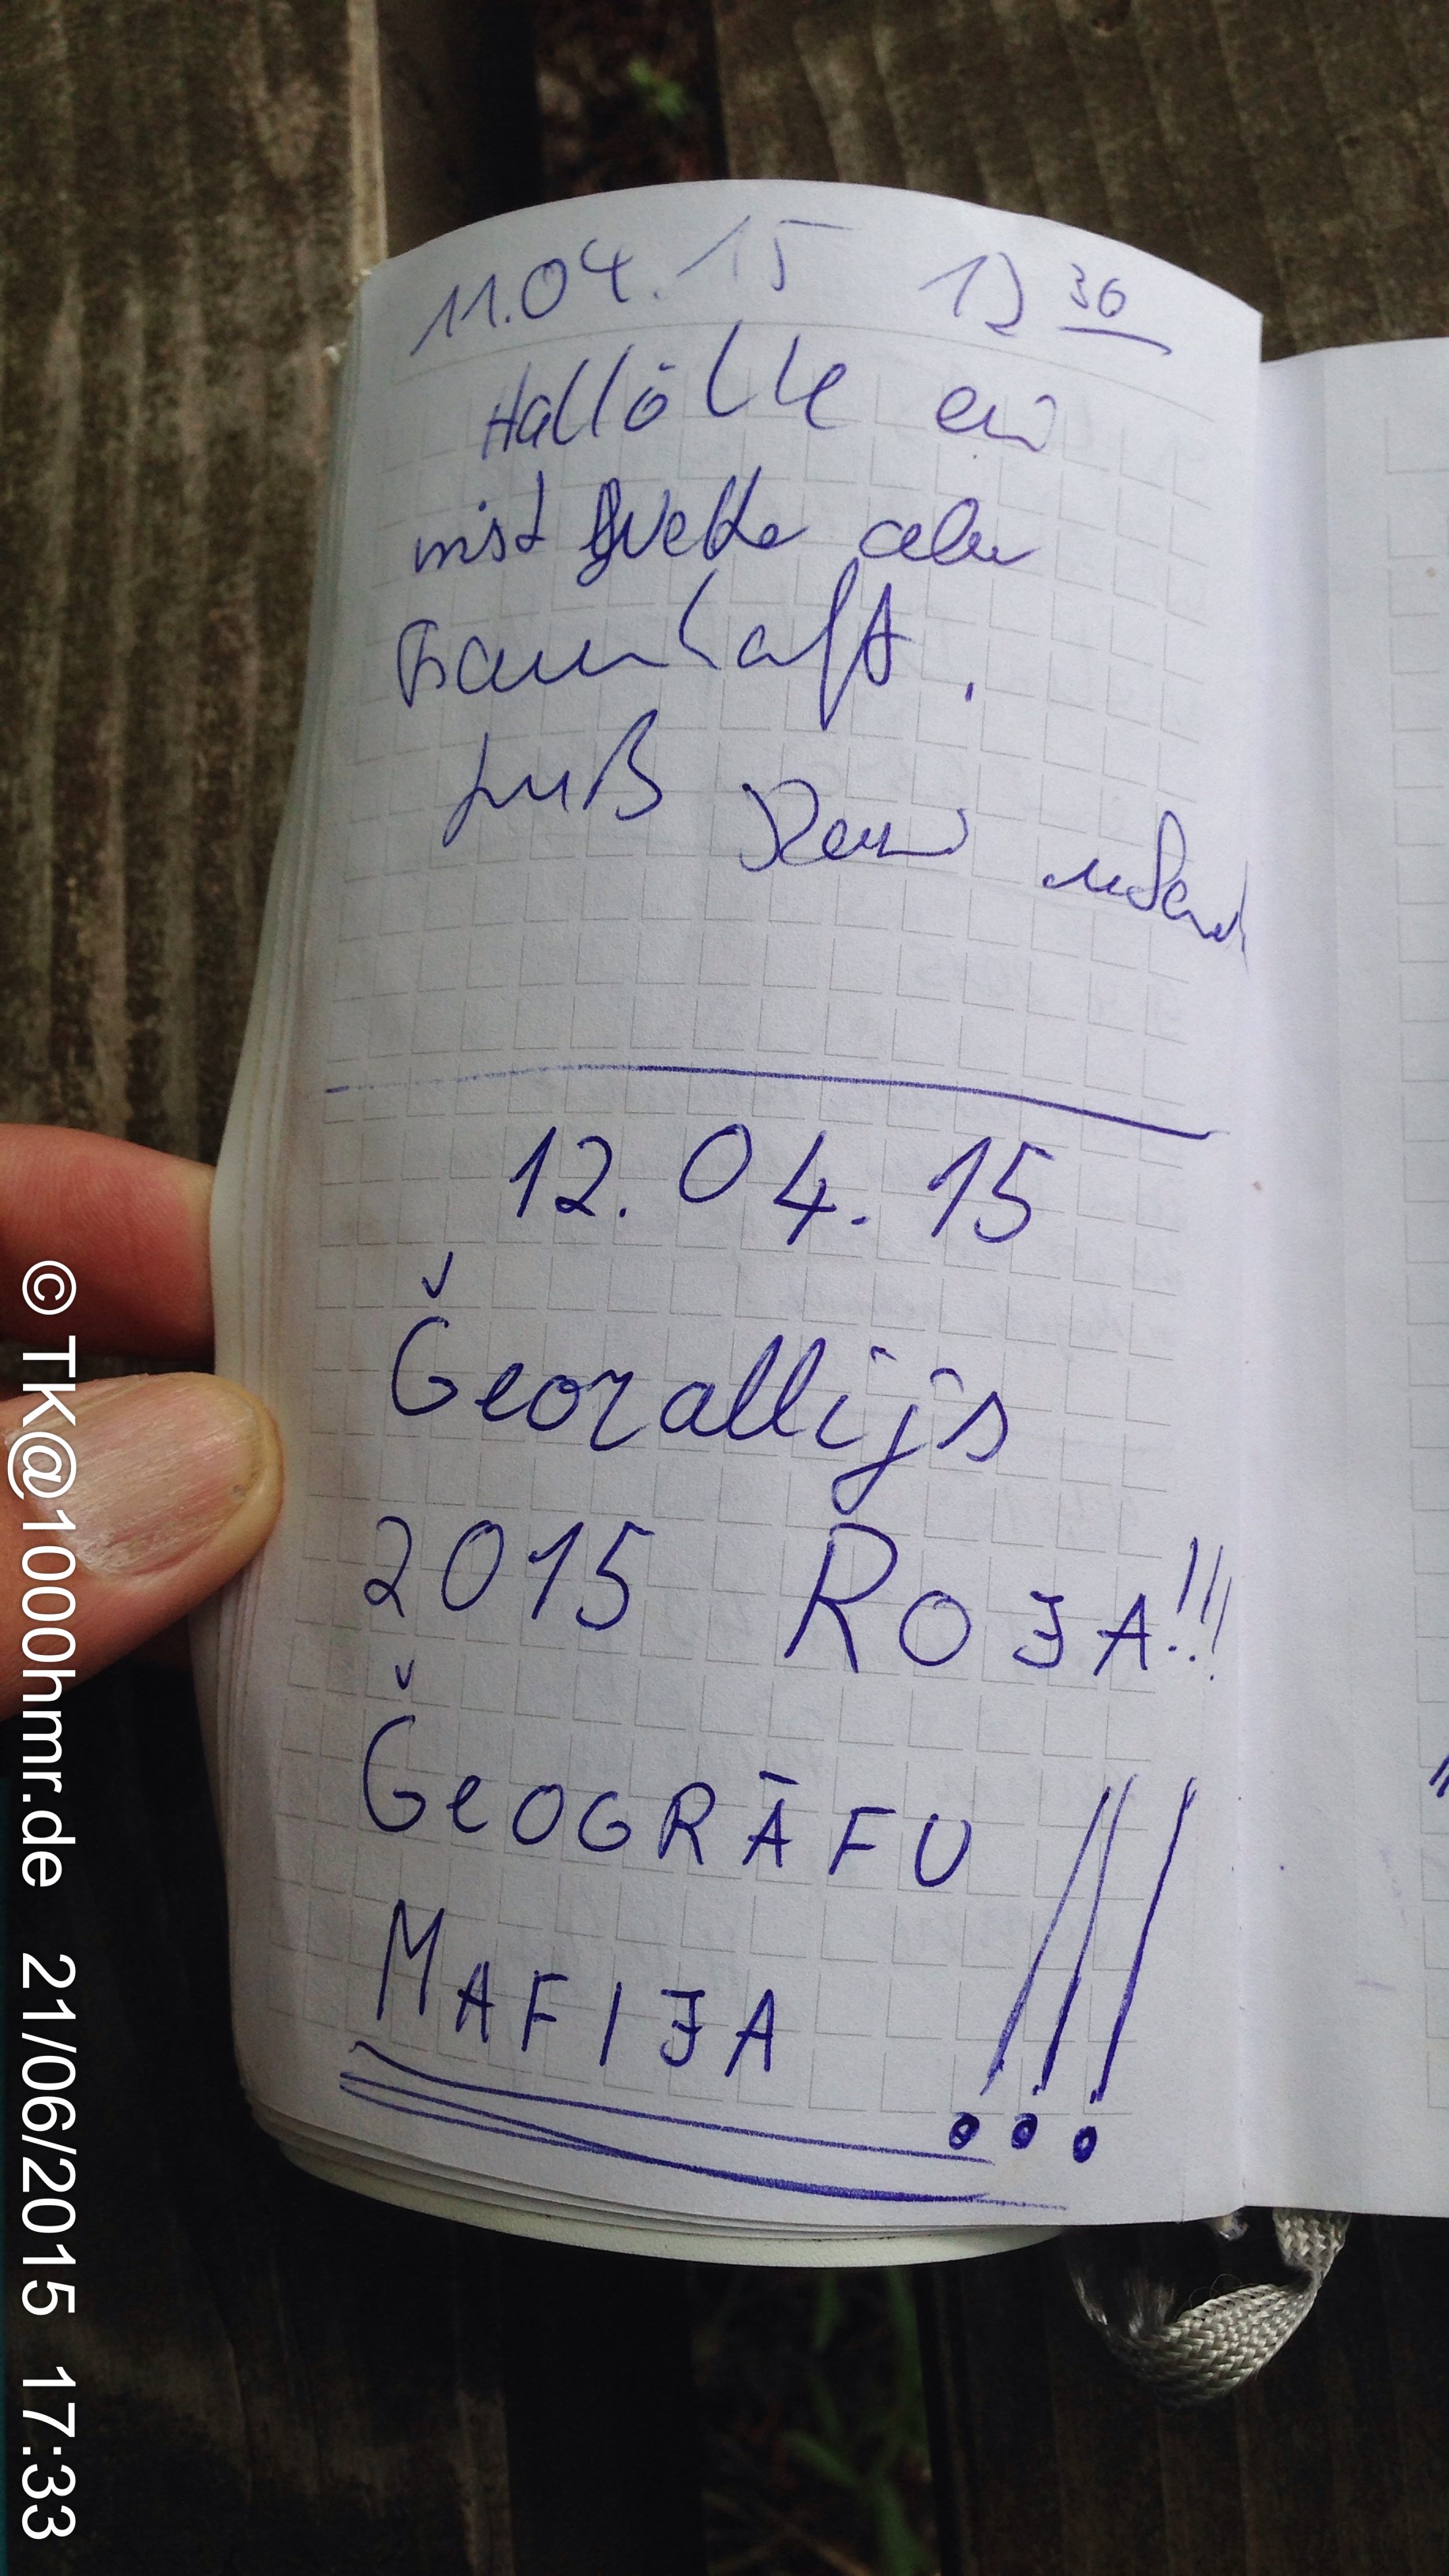 11.04.15 12 30
Hallöle ein
mist Wetter aber
traumhaft.
Gruß
12.04.15
Ğeorallijs
2015 ROJA!!!
ĞeOGRĀFU
MAFIJA !!!
© TK@1000hmr.de 21/06/2015 17:33